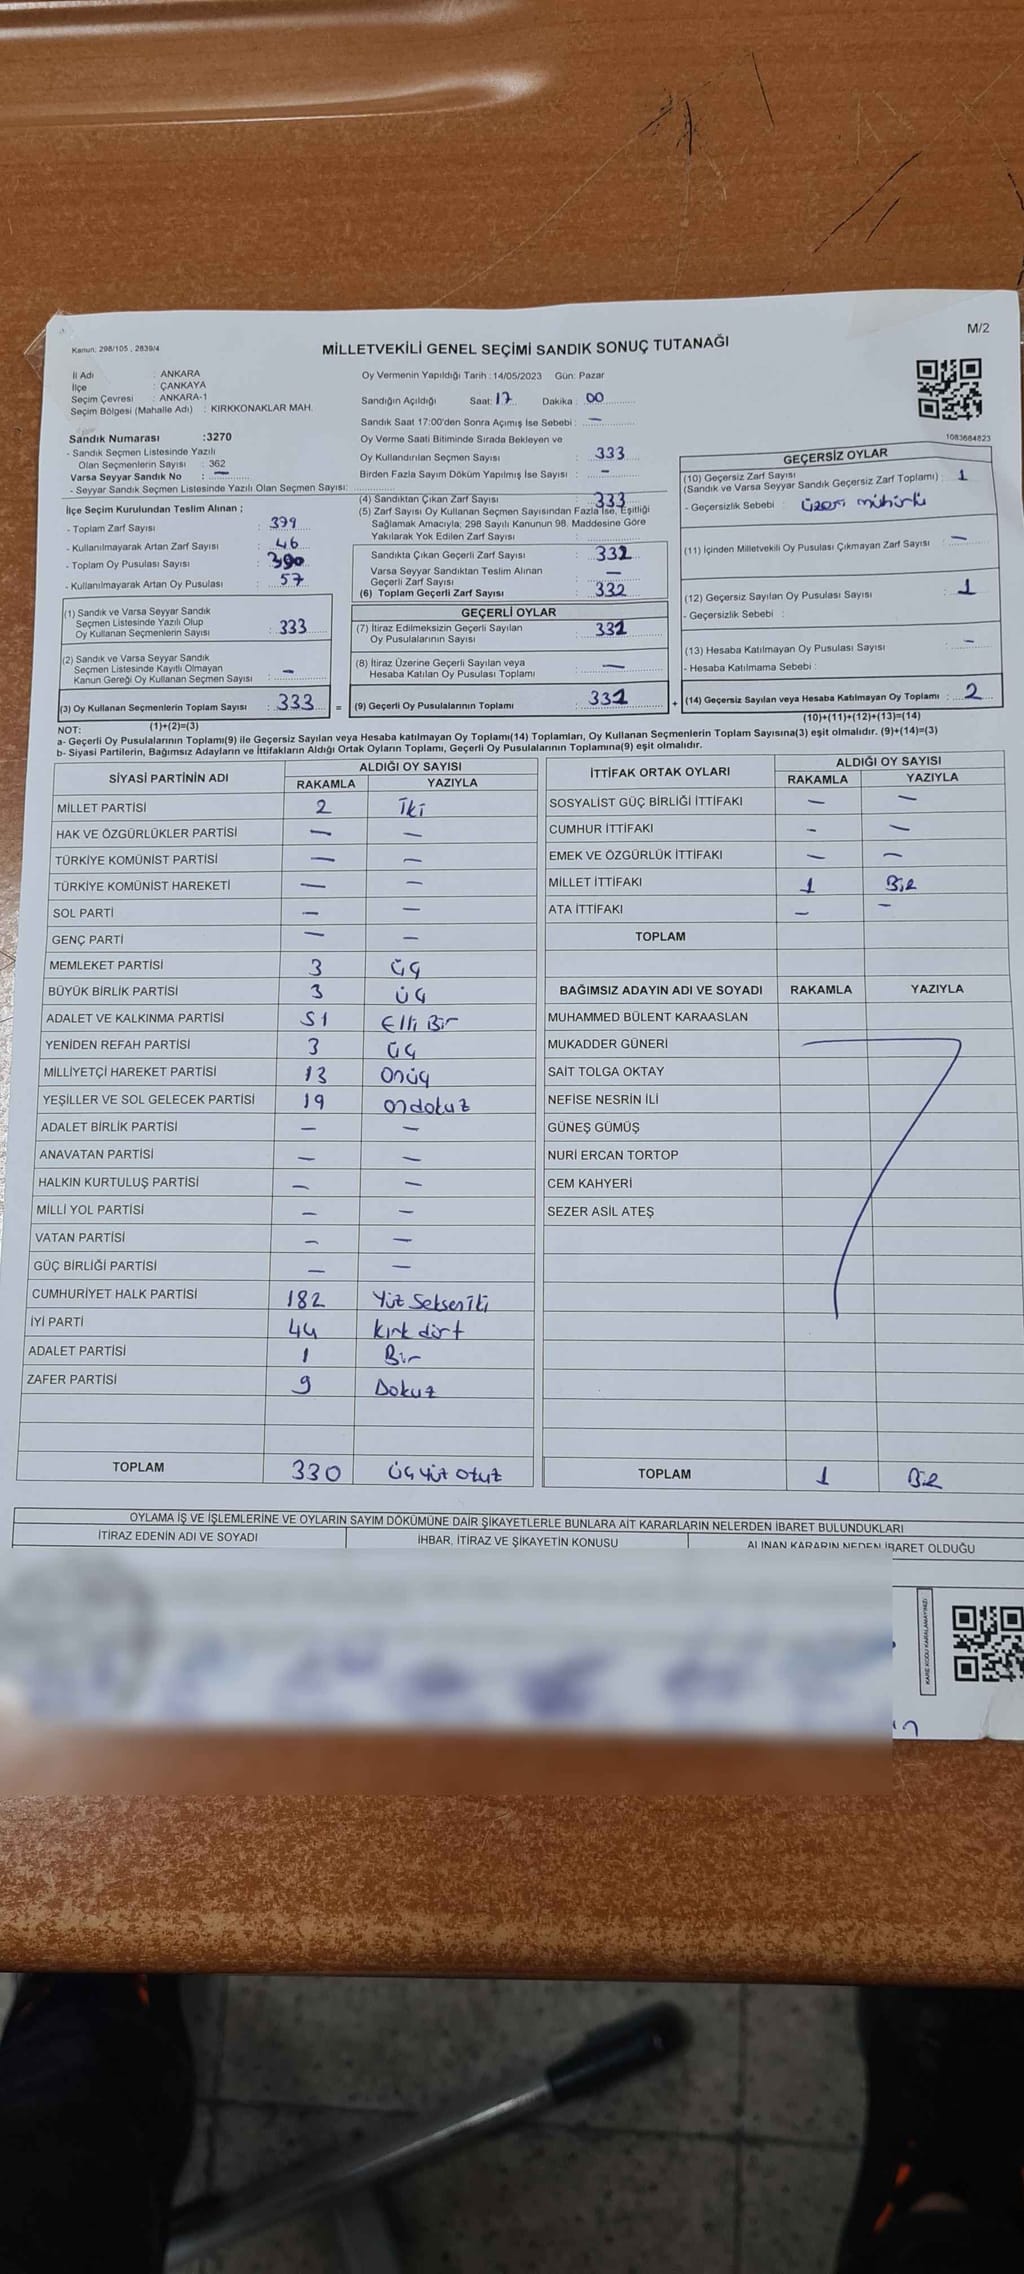 M/2
Kanun: 298/105 , 2839/4
MİLLETVEKİLİ GENEL SEÇİMİ SANDIK SONUÇ TUTANAĞI
İl Adı : ANKARA
İlçe : ÇANKAYA
Seçim Çevresi : ANKARA-1
Seçim Bölgesi (Mahalle Adı) : KIRKKONAKLAR MAH.
Sandık Numarası :3270
- Sandık Seçmen Listesinde Yazılı
Olan Seçmenlerin Sayısı : 362
Varsa Seyyar Sandık No : —
- Seyyar Sandık Seçmen Listesinde Yazılı Olan Seçmen Sayısı:
İlçe Seçim Kurulundan Teslim Alınan ;
- Toplam Zarf Sayısı : 379
- Kullanılmayarak Artan Zarf Sayısı : 46
- Toplam Oy Pusulası Sayısı : 390
- Kullanılmayarak Artan Oy Pusulası : 57
(1) Sandık ve Varsa Seyyar Sandık
Seçmen Listesinde Yazılı Olup
Oy Kullanan Seçmenlerin Sayısı : 333
(2) Sandık ve Varsa Seyyar Sandık
Seçmen Listesinde Kayıtlı Olmayan
Kanun Gereği Oy Kullanan Seçmen Sayısı : —
(3) Oy Kullanan Seçmenlerin Toplam Sayısı : 333
Oy Vermenin Yapıldığı Tarih :14/05/2023 Gün: Pazar
Sandığın Açıldığı Saat: 17 Dakika : 00
Sandık Saat 17:00'den Sonra Açımış İse Sebebi : —
Oy Verme Saati Bitiminde Sırada Bekleyen ve
Oy Kullandırılan Seçmen Sayısı : 333
Birden Fazla Sayım Döküm Yapılmış İse Sayısı : —
(4) Sandıktan Çıkan Zarf Sayısı : 333
(5) Zarf Sayısı Oy Kullanan Seçmen Sayısından Fazla İse, Eşitliği
Sağlamak Amacıyla; 298 Sayılı Kanunun 98. Maddesine Göre
Yakılarak Yok Edilen Zarf Sayısı :
Sandıkta Çıkan Geçerli Zarf Sayısı : 332
Varsa Seyyar Sandıktan Teslim Alınan
Geçerli Zarf Sayısı : —
(6) Toplam Geçerli Zarf Sayısı : 332
GEÇERLİ OYLAR
(7) İtiraz Edilmeksizin Geçerli Sayılan
Oy Pusulalarının Sayısı : 331
(8) İtiraz Üzerine Geçerli Sayılan veya
Hesaba Katılan Oy Pusulası Toplamı : —
= (9) Geçerli Oy Pusulalarının Toplamı : 331 +
1083684823
GEÇERSİZ OYLAR
(10) Geçersiz Zarf Sayısı
(Sandık ve Varsa Seyyar Sandık Geçersiz Zarf Toplamı) : 1
- Geçersizlik Sebebi : üzeri mühürlü
(11) İçinden Milletvekili Oy Pusulası Çıkmayan Zarf Sayısı : —
(12) Geçersiz Sayılan Oy Pusulası Sayısı : 1
- Geçersizlik Sebebi :
(13) Hesaba Katılmayan Oy Pusulası Sayısı : —
- Hesaba Katılmama Sebebi :
(14) Geçersiz Sayılan veya Hesaba Katılmayan Oy Toplamı : 2
NOT: (1)+(2)=(3) (10)+(11)+(12)+(13)=(14)
a- Geçerli Oy Pusulalarının Toplamı(9) ile Geçersiz Sayılan veya Hesaba katılmayan Oy Toplamı(14) Toplamları, Oy Kullanan Seçmenlerin Toplam Sayısına(3) eşit olmalıdır. (9)+(14)=(3)
b- Siyasi Partilerin, Bağımsız Adayların ve İttifakların Aldığı Ortak Oyların Toplamı, Geçerli Oy Pusulalarının Toplamına(9) eşit olmalıdır.
SİYASİ PARTİNİN ADI ALDIĞI OY SAYISI
RAKAMLA YAZIYLA
MİLLET PARTİSİ 2 İki
HAK VE ÖZGÜRLÜKLER PARTİSİ — —
TÜRKİYE KOMÜNİST PARTİSİ — —
TÜRKİYE KOMÜNİST HAREKETİ — —
SOL PARTİ — —
GENÇ PARTİ — —
MEMLEKET PARTİSİ 3 üç
BÜYÜK BİRLİK PARTİSİ 3 üç
ADALET VE KALKINMA PARTİSİ 51 Elli Bir
YENİDEN REFAH PARTİSİ 3 üç
MİLLİYETÇİ HAREKET PARTİSİ 13 Onüç
YEŞİLLER VE SOL GELECEK PARTİSİ 19 ondokuz
ADALET BİRLİK PARTİSİ — —
ANAVATAN PARTİSİ — —
HALKIN KURTULUŞ PARTİSİ — —
MİLLİ YOL PARTİSİ — —
VATAN PARTİSİ — —
GÜÇ BİRLİĞİ PARTİSİ — —
CUMHURİYET HALK PARTİSİ 182 Yüz Seksen İki
İYİ PARTİ 44 kırk dört
ADALET PARTİSİ 1 Bir
ZAFER PARTİSİ 9 Dokuz
TOPLAM 330 üç yüz otuz
İTTİFAK ORTAK OYLARI ALDIĞI OY SAYISI
RAKAMLA YAZIYLA
SOSYALİST GÜÇ BİRLİĞİ İTTİFAKI — —
CUMHUR İTTİFAKI — —
EMEK VE ÖZGÜRLÜK İTTİFAKI — —
MİLLET İTTİFAKI 1 Bir
ATA İTTİFAKI — —
TOPLAM
BAĞIMSIZ ADAYIN ADI VE SOYADI RAKAMLA YAZIYLA
MUHAMMED BÜLENT KARAASLAN
MUKADDER GÜNERİ
SAİT TOLGA OKTAY
NEFİSE NESRİN İLİ
GÜNEŞ GÜMÜŞ
NURİ ERCAN TORTOP
CEM KAHYERİ
SEZER ASİL ATEŞ
TOPLAM 1 Bir
OYLAMA İŞ VE İŞLEMLERİNE VE OYLARIN SAYIM DÖKÜMÜNE DAİR ŞİKAYETLERLE BUNLARA AİT KARARLARIN NELERDEN İBARET BULUNDUKLARI
İTİRAZ EDENİN ADI VE SOYADI İHBAR, İTİRAZ VE ŞİKAYETİN KONUSU ALINAN KARARIN NEDEN İBARET OLDUĞU
KARE KODU KARALAMAYINIZ!